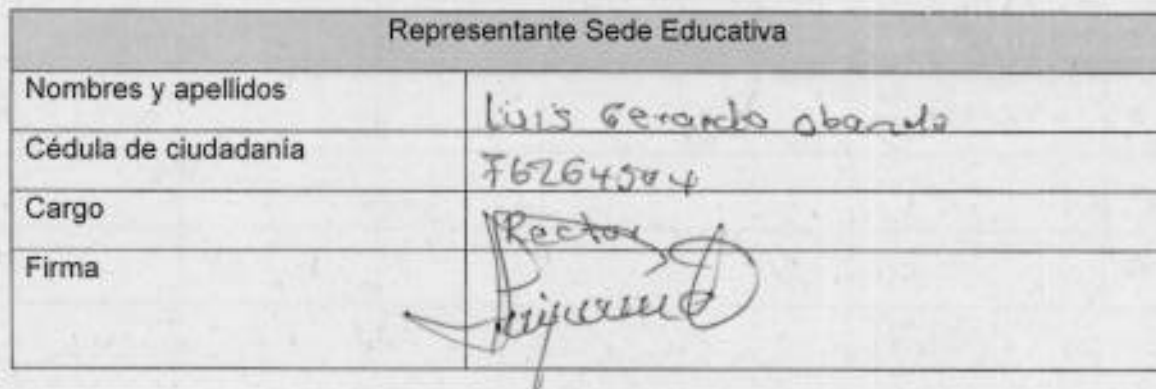 Representante Sede Educativa
Nombres y apellidos
Luis Gerardo obando
Cédula de ciudadanía
Cargo
Rector
Firma